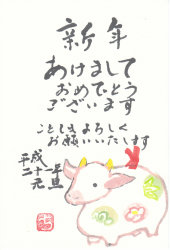 新年
あけまして
おめでとう
ございます
ことしもよろしく
お願いいたします
平成二十一年
元旦